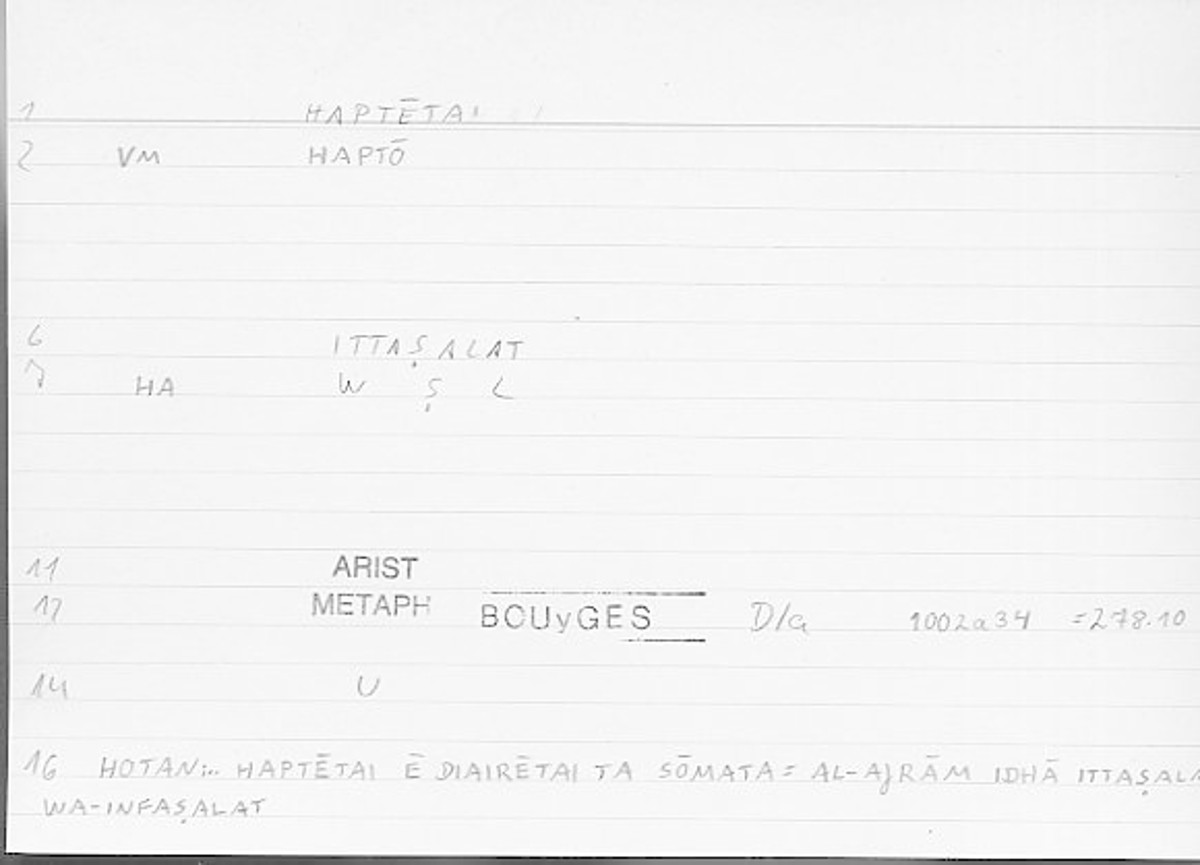 1 HAPTĒTAI
2 VM HAPTŌ
6 ITTAṢALAT
7 HA W Ṣ L
11 ARIST
12 METAPH BOUyGES D/G 1002a34 =278.10
14 U
16 HOTAN... HAPTĒTAI Ē DIAIRĒTAI TA SŌMATA = AL-AJRĀM IDHĀ ITTAṢALA
WA-INFAṢALAT